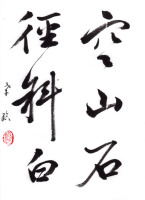 空山石
徑斜白